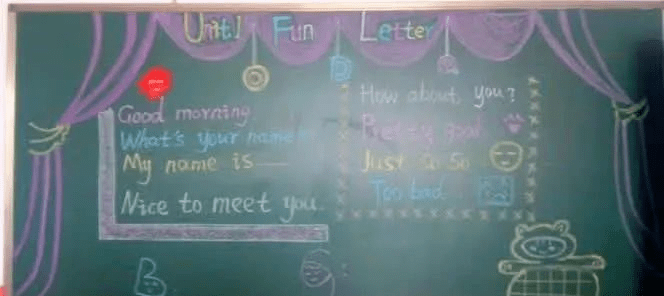 Unit1 Fun Letter
Good morning.
What's your name
My name is
Nice to meet you.
How about you?
Pretty good
Just So So
Too bad
B